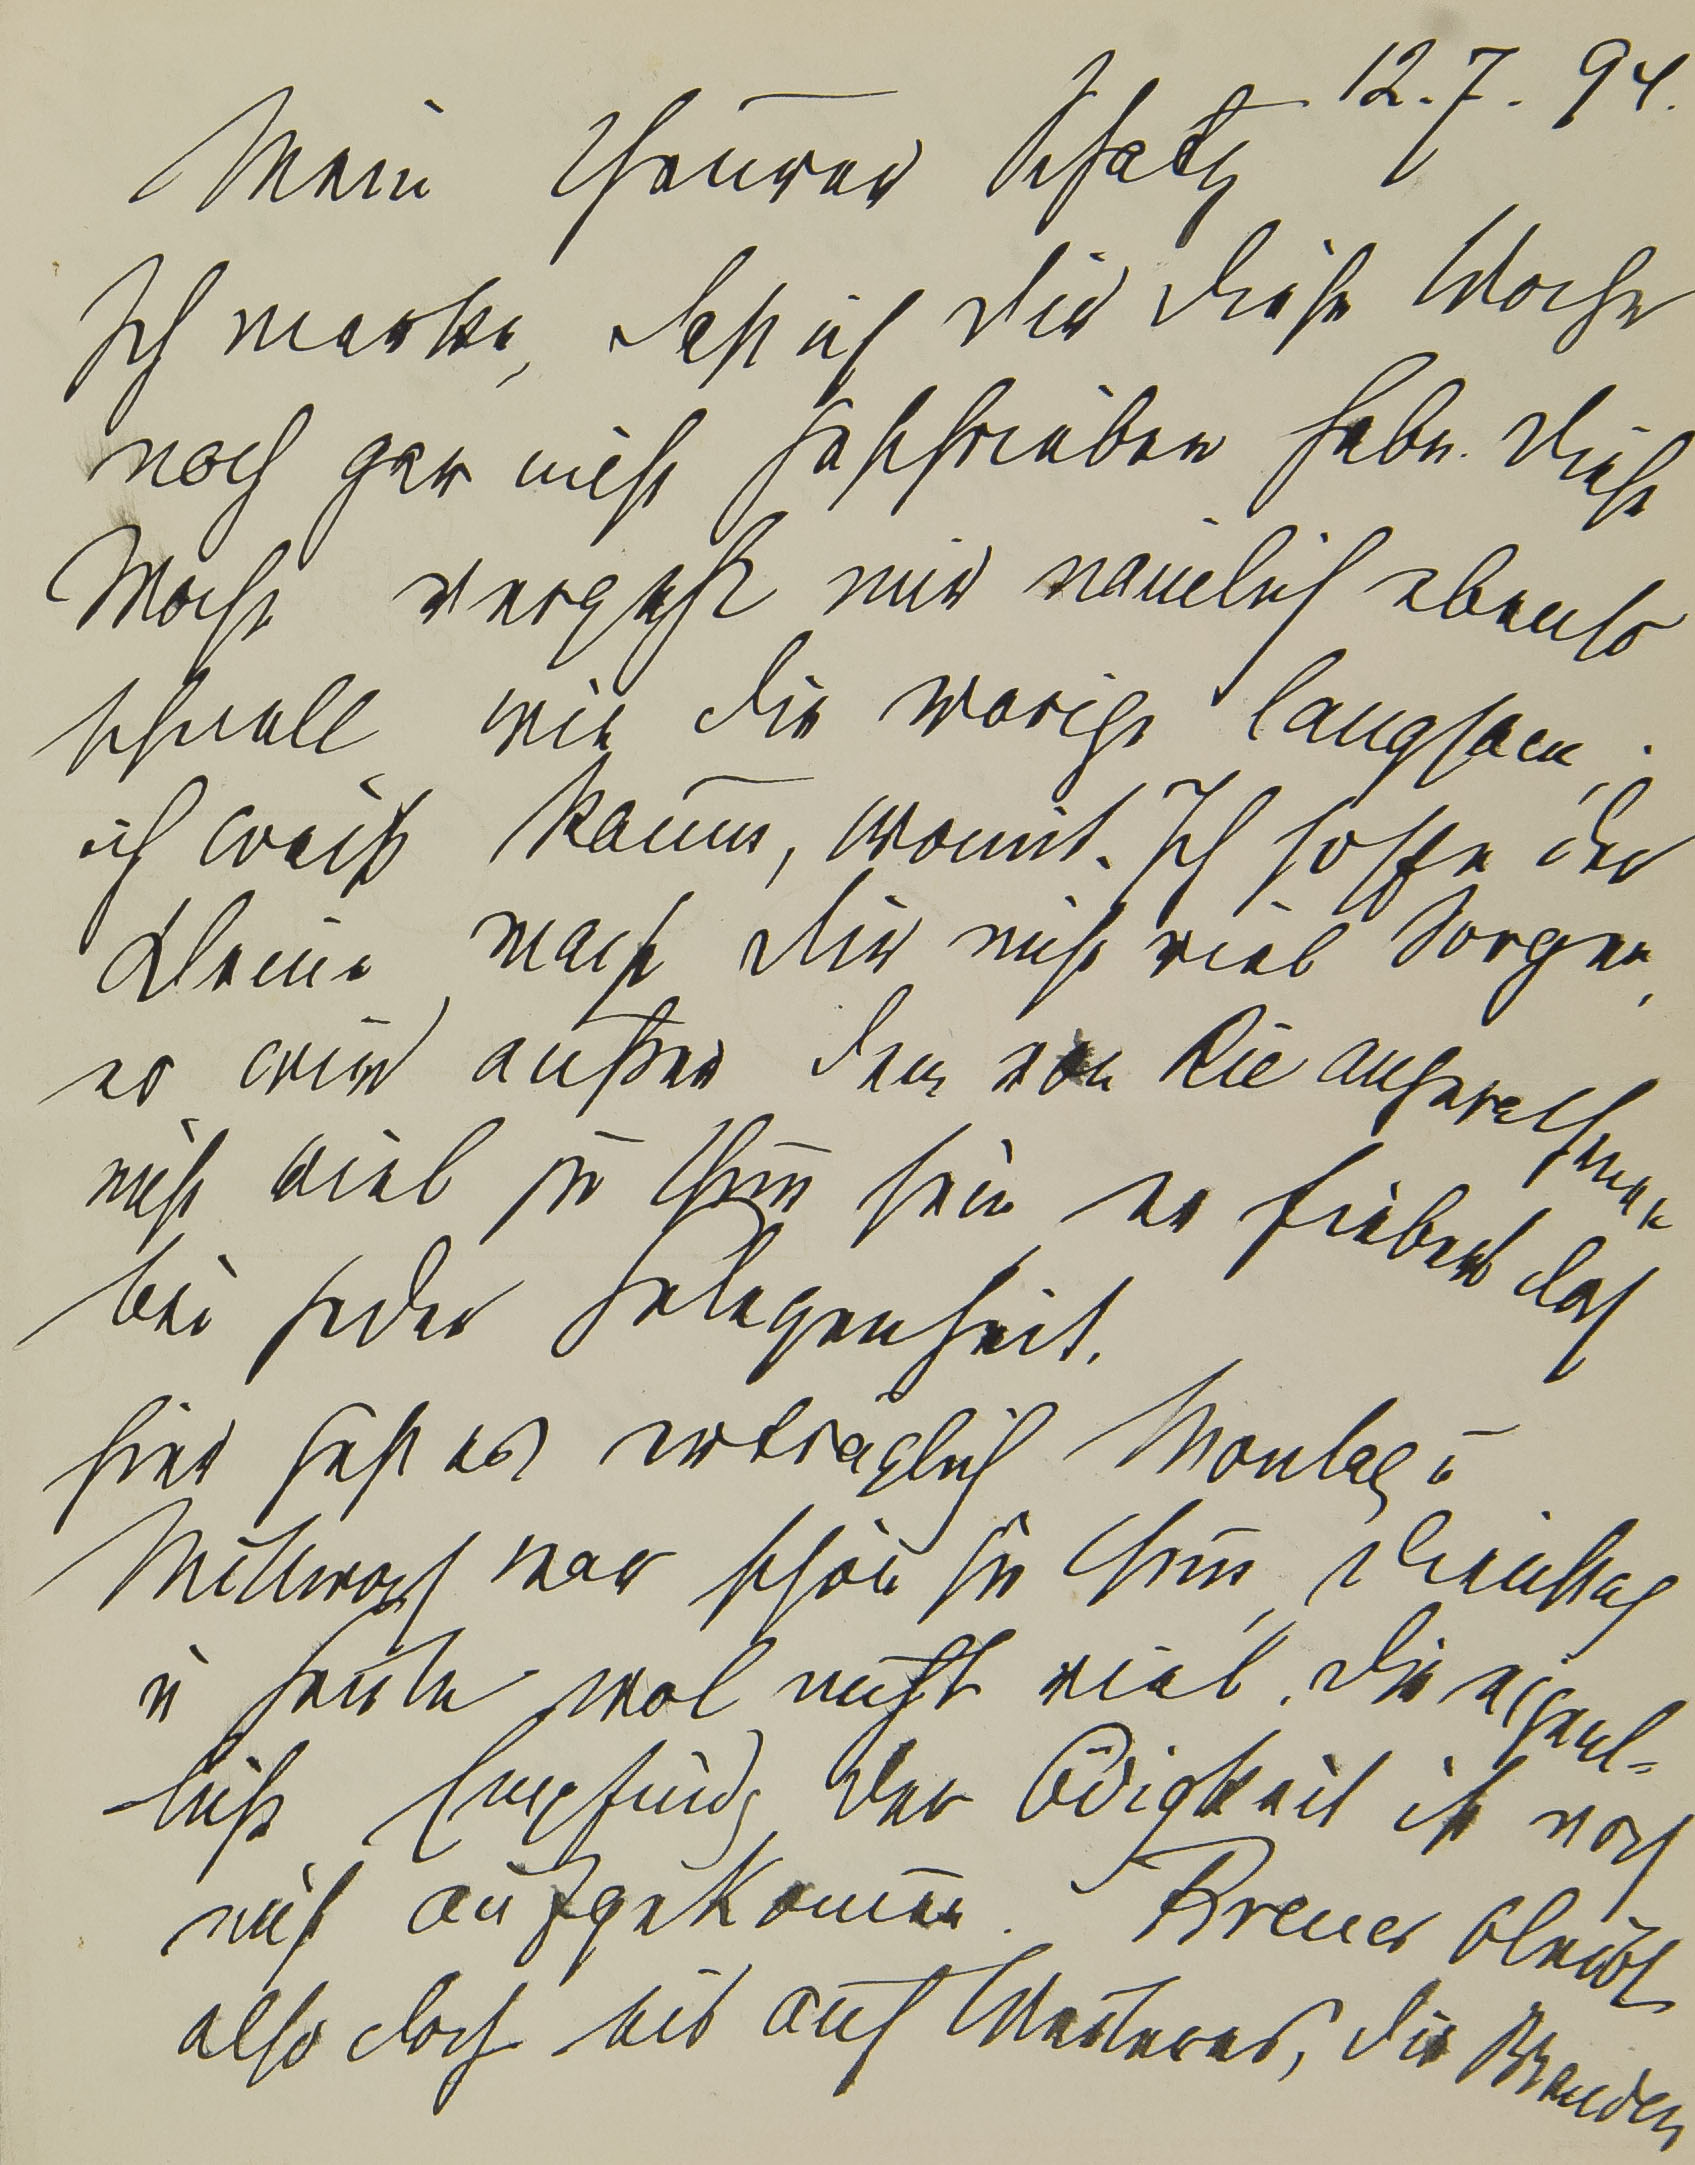 12. 7. 94.
Mein theurer Schatz
Ich merke, daß ich dir diese Woche
noch gar nicht geschrieben habe. Diese
Woche vergeht mir nämlich ebenso
schnell wie die vorige langsam;
ich weiß kaum, womit. Ich hoffe der
Kleine macht dir nicht viel Sorgen,
es wird außer dem von Rie angerathenen
nicht viel zu thun sein er fiebert doch
bei jeder Gelegenheit.
Hier geht es erträglich Montag u
Mittwoch war schön zu thun, Dienstag
u heute wol nicht viel. Die eigent-
liche Empfindg der Ödigkeit ist noch
nicht aufgekommen. Breuer bleibt
also doch bis auf Weiteres, die